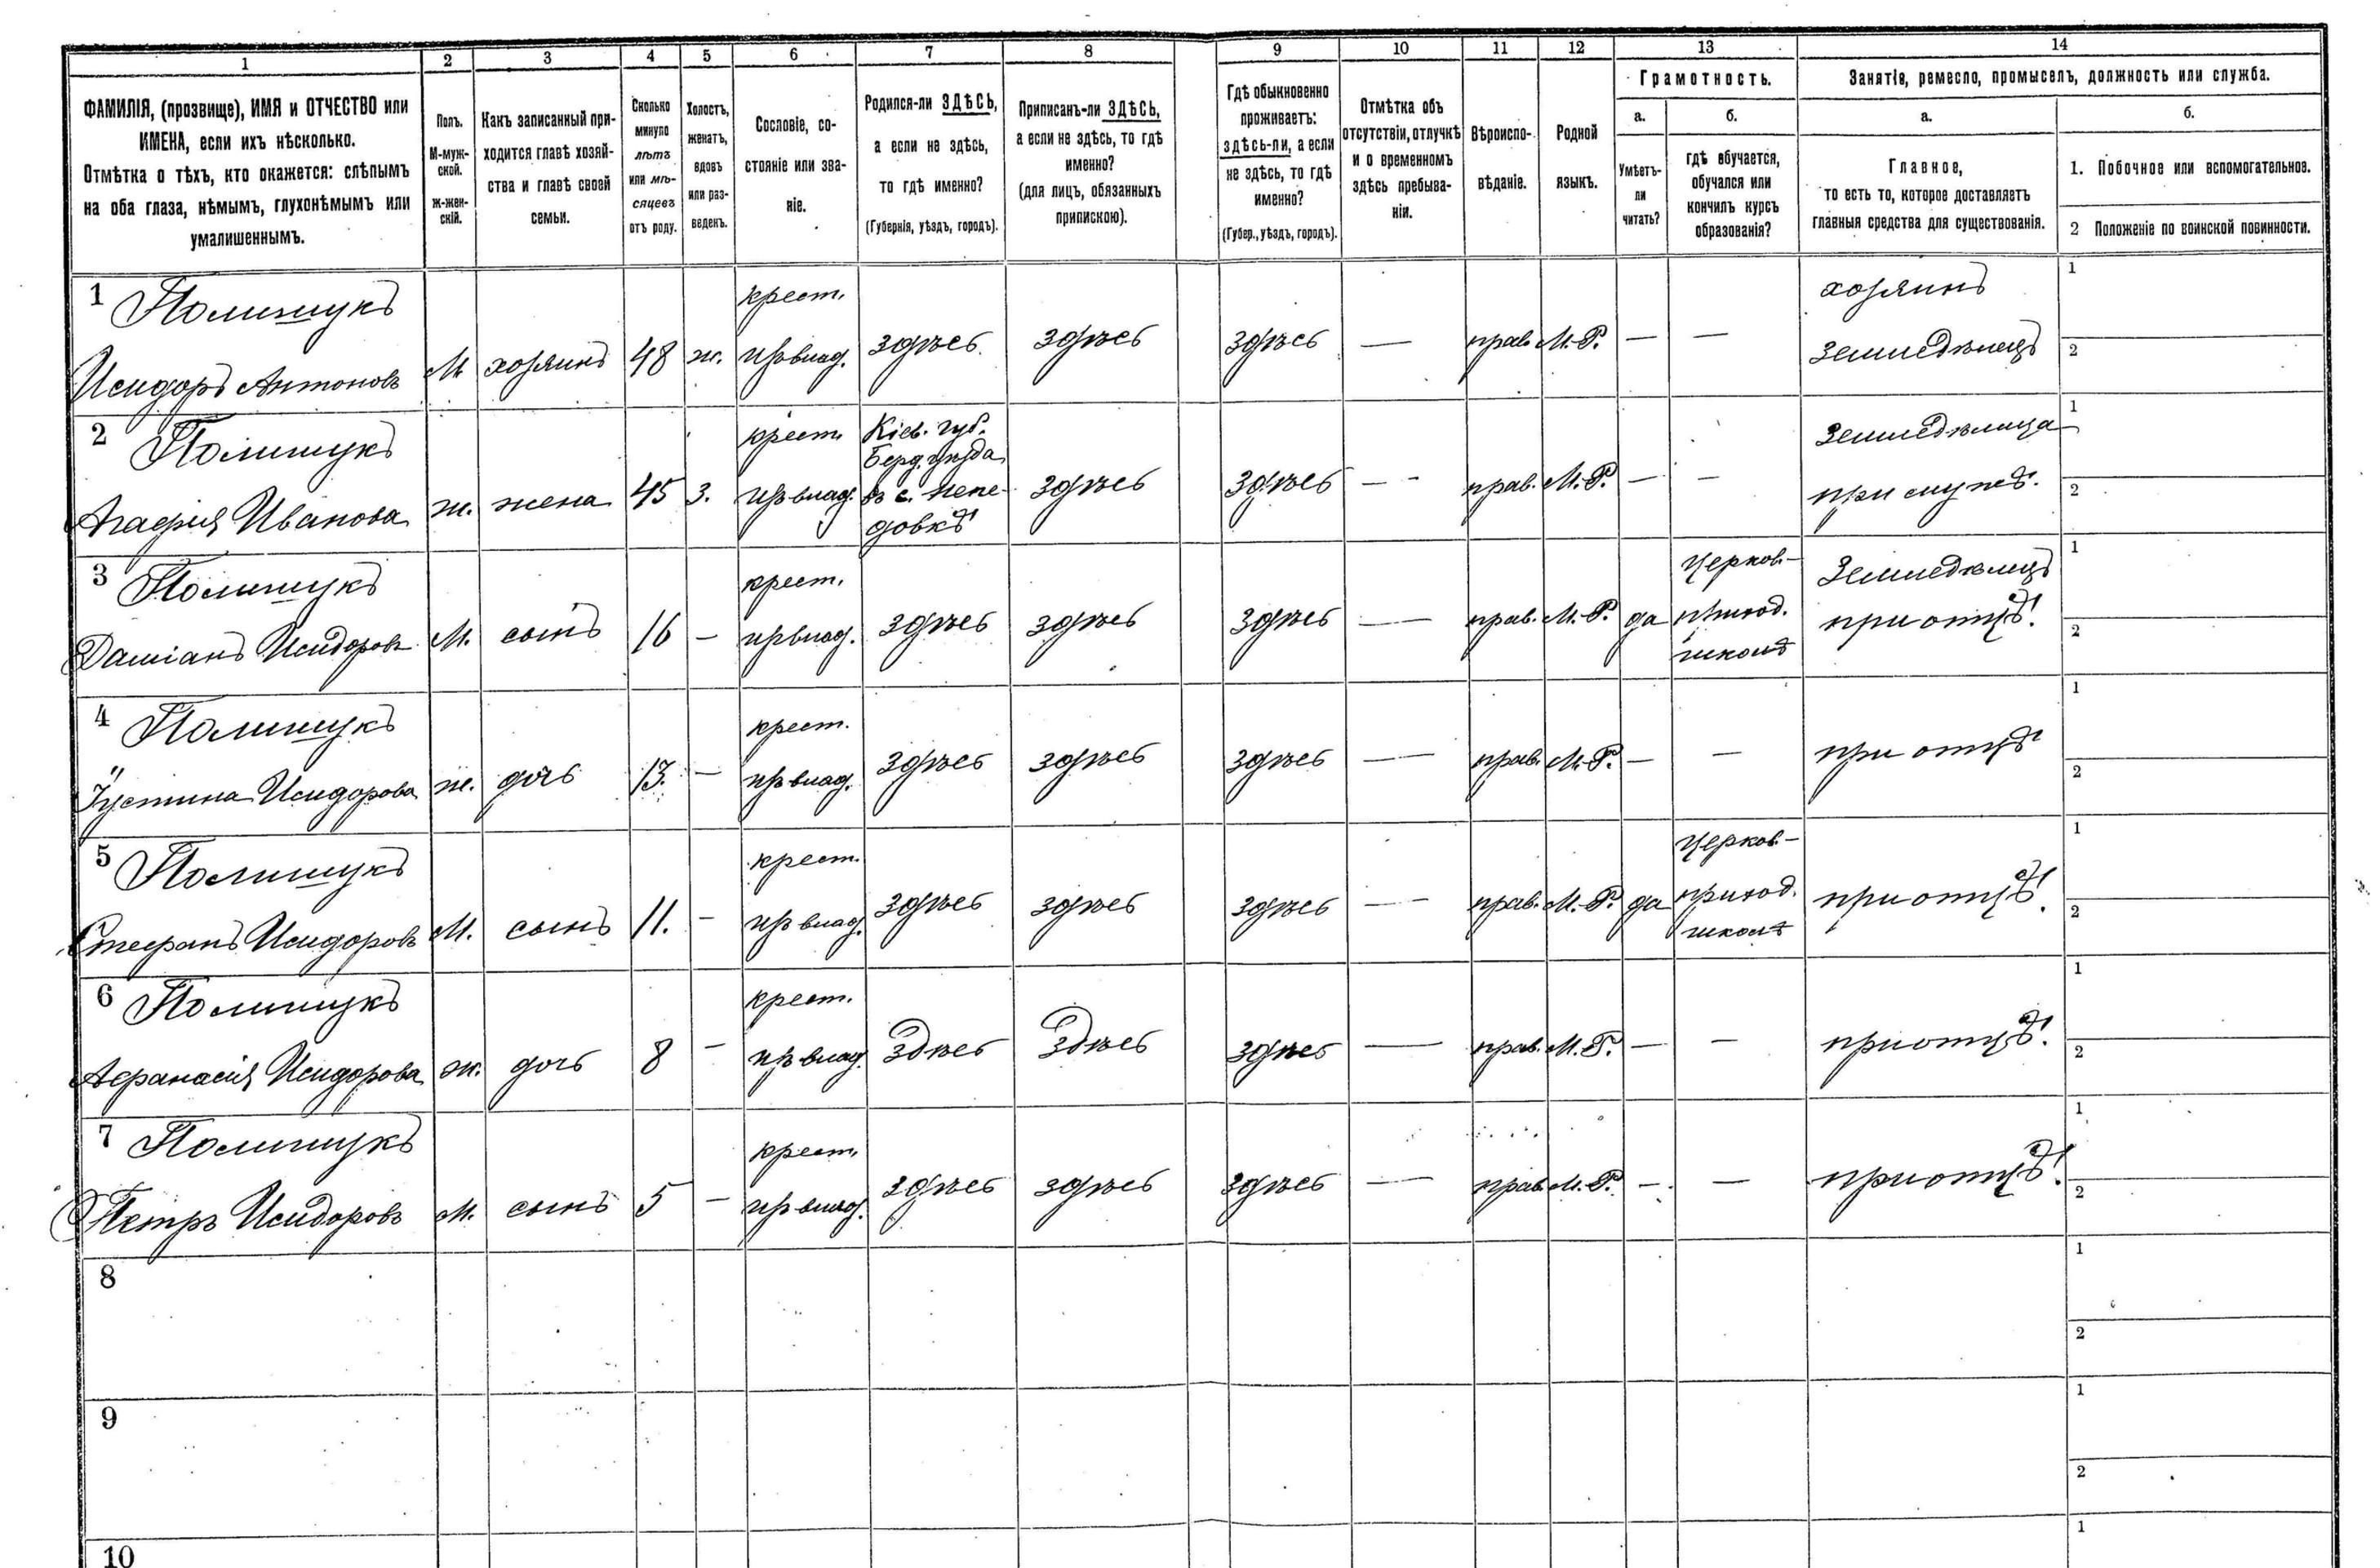 1 2 3 4 5 6 7 8 9 10 11 12 13 14
ФАМИЛІЯ, (прозвище), ИМЯ и ОТЧЕСТВО или
ИМЕНА, если ихъ нѣсколько.
Отмѣтка о тѣхъ, кто окажется: слѣпымъ
на оба глаза, нѣмымъ, глухонѣмымъ или
умалишеннымъ.
Полъ.
М-муж-
ской.
ж-жен-
скій.
Какъ записанный при-
ходится главѣ хозяй-
ства и главѣ своей
семьи.
Сколько
минуло
лѣтъ
или мѣ-
сяцевъ
отъ роду.
Холостъ,
женатъ,
вдовъ
или раз-
веденъ.
Сословіе, со-
стояніе или зва-
ніе.
Родился-ли ЗДѢСЬ,
а если не здѣсь,
то гдѣ именно?
(Губернія, уѣздъ, городъ).
Приписанъ-ли ЗДѢСЬ,
а если не здѣсь, то гдѣ
именно?
(для лицъ, обязанныхъ
припискою).
Гдѣ обыкновенно
проживаетъ:
здѣсь-ли, а если
не здѣсь, то гдѣ
именно?
(Губер., уѣздъ, городъ).
Отмѣтка объ
отсутствіи, отлучкѣ
и о временномъ
здѣсь пребыва-
ніи.
Вѣроиспо-
вѣданіе.
Родной
языкъ.
Грамотность.
а.
Умѣетъ-
ли
читать?
б.
гдѣ обучается,
обучался или
кончилъ курсъ
образованія?
Занятіе, ремесло, промыселъ, должность или служба.
а.
Главное,
то есть то, которое доставляетъ
главныя средства для существованія.
б.
1. Побочное или вспомогательное.
2 Положеніе по воинской повинности.
1 Полищукъ
Исидоръ Антоновъ
М
хозяинъ
48
ж.
крест.
пр влад.
здѣсь
здѣсь
здѣсь
—
прав.
М.-Р.
—
—
хозяинъ
земледѣлецъ
1
2
2 Полищукъ
Агафія Иванова
ж.
жена
45
з.
крест
пр влад.
Кіев. губ.
Берд. уѣзда
въ с. Непе-
довкѣ
здѣсь
здѣсь
— -
прав.
М.-Р.
—
—
земледѣлица
при мужѣ.
1
2
3 Полищукъ
Даміанъ Исидоровъ
М.
сынъ
16
—
крест.
пр влад.
здѣсь
здѣсь
здѣсь
—
прав.
М.-Р.
да
Церков.-
приход.
школѣ
Земледѣлецъ
при отцѣ.
1
2
4 Полищукъ
Іустина Исидорова
ж.
дочь
13.
—
крест.
пр влад.
здѣсь
здѣсь
здѣсь
—
прав.
М.-Р.
—
—
при отцѣ
1
2
5 Полищукъ
Стефанъ Исидоровъ
М.
сынъ
11.
-
крест.
пр влад.
здѣсь
здѣсь
здѣсь
—
прав.
М.-Р.
да
Церков.-
приход.
школѣ
при отцѣ.
1
2
6 Полищукъ
Афанасія Исидорова
ж.
дочь
8
—
крест.
пр влад.
Здѣсь
Здѣсь
здѣсь
—
прав.
М.-Р.
—
—
при отцѣ.
1
2
7 Полищукъ
Петръ Исидоровъ
М.
сынъ
5
—
крест.
пр влад.
здѣсь
здѣсь
здѣсь
—
прав.
М.-Р.
—
—
при отцѣ.
1
2
8
1
2
9
1
2
10
1